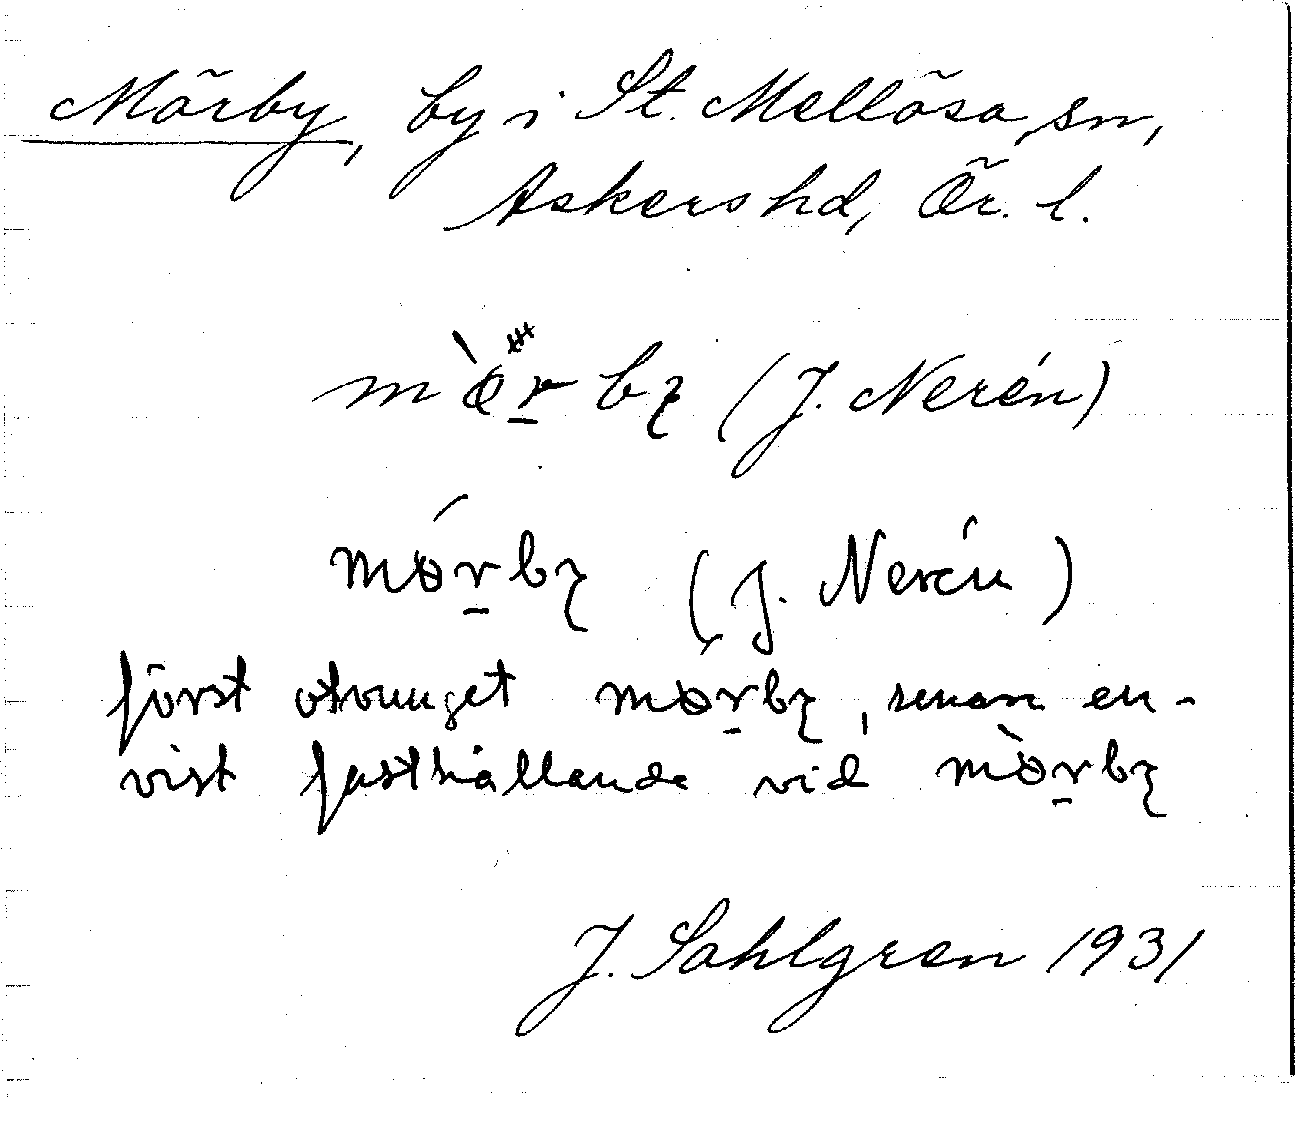 Mörby, by i St. Mellösa sn,
Askers hd, Ör. l.
mö̀r̠by (J. Nerén)
mǿr̠by (J. Nerén)
först otvunget mør̠by, senare en-
vist fasthållande vid mø̀r̠by
J. Sahlgren 1931